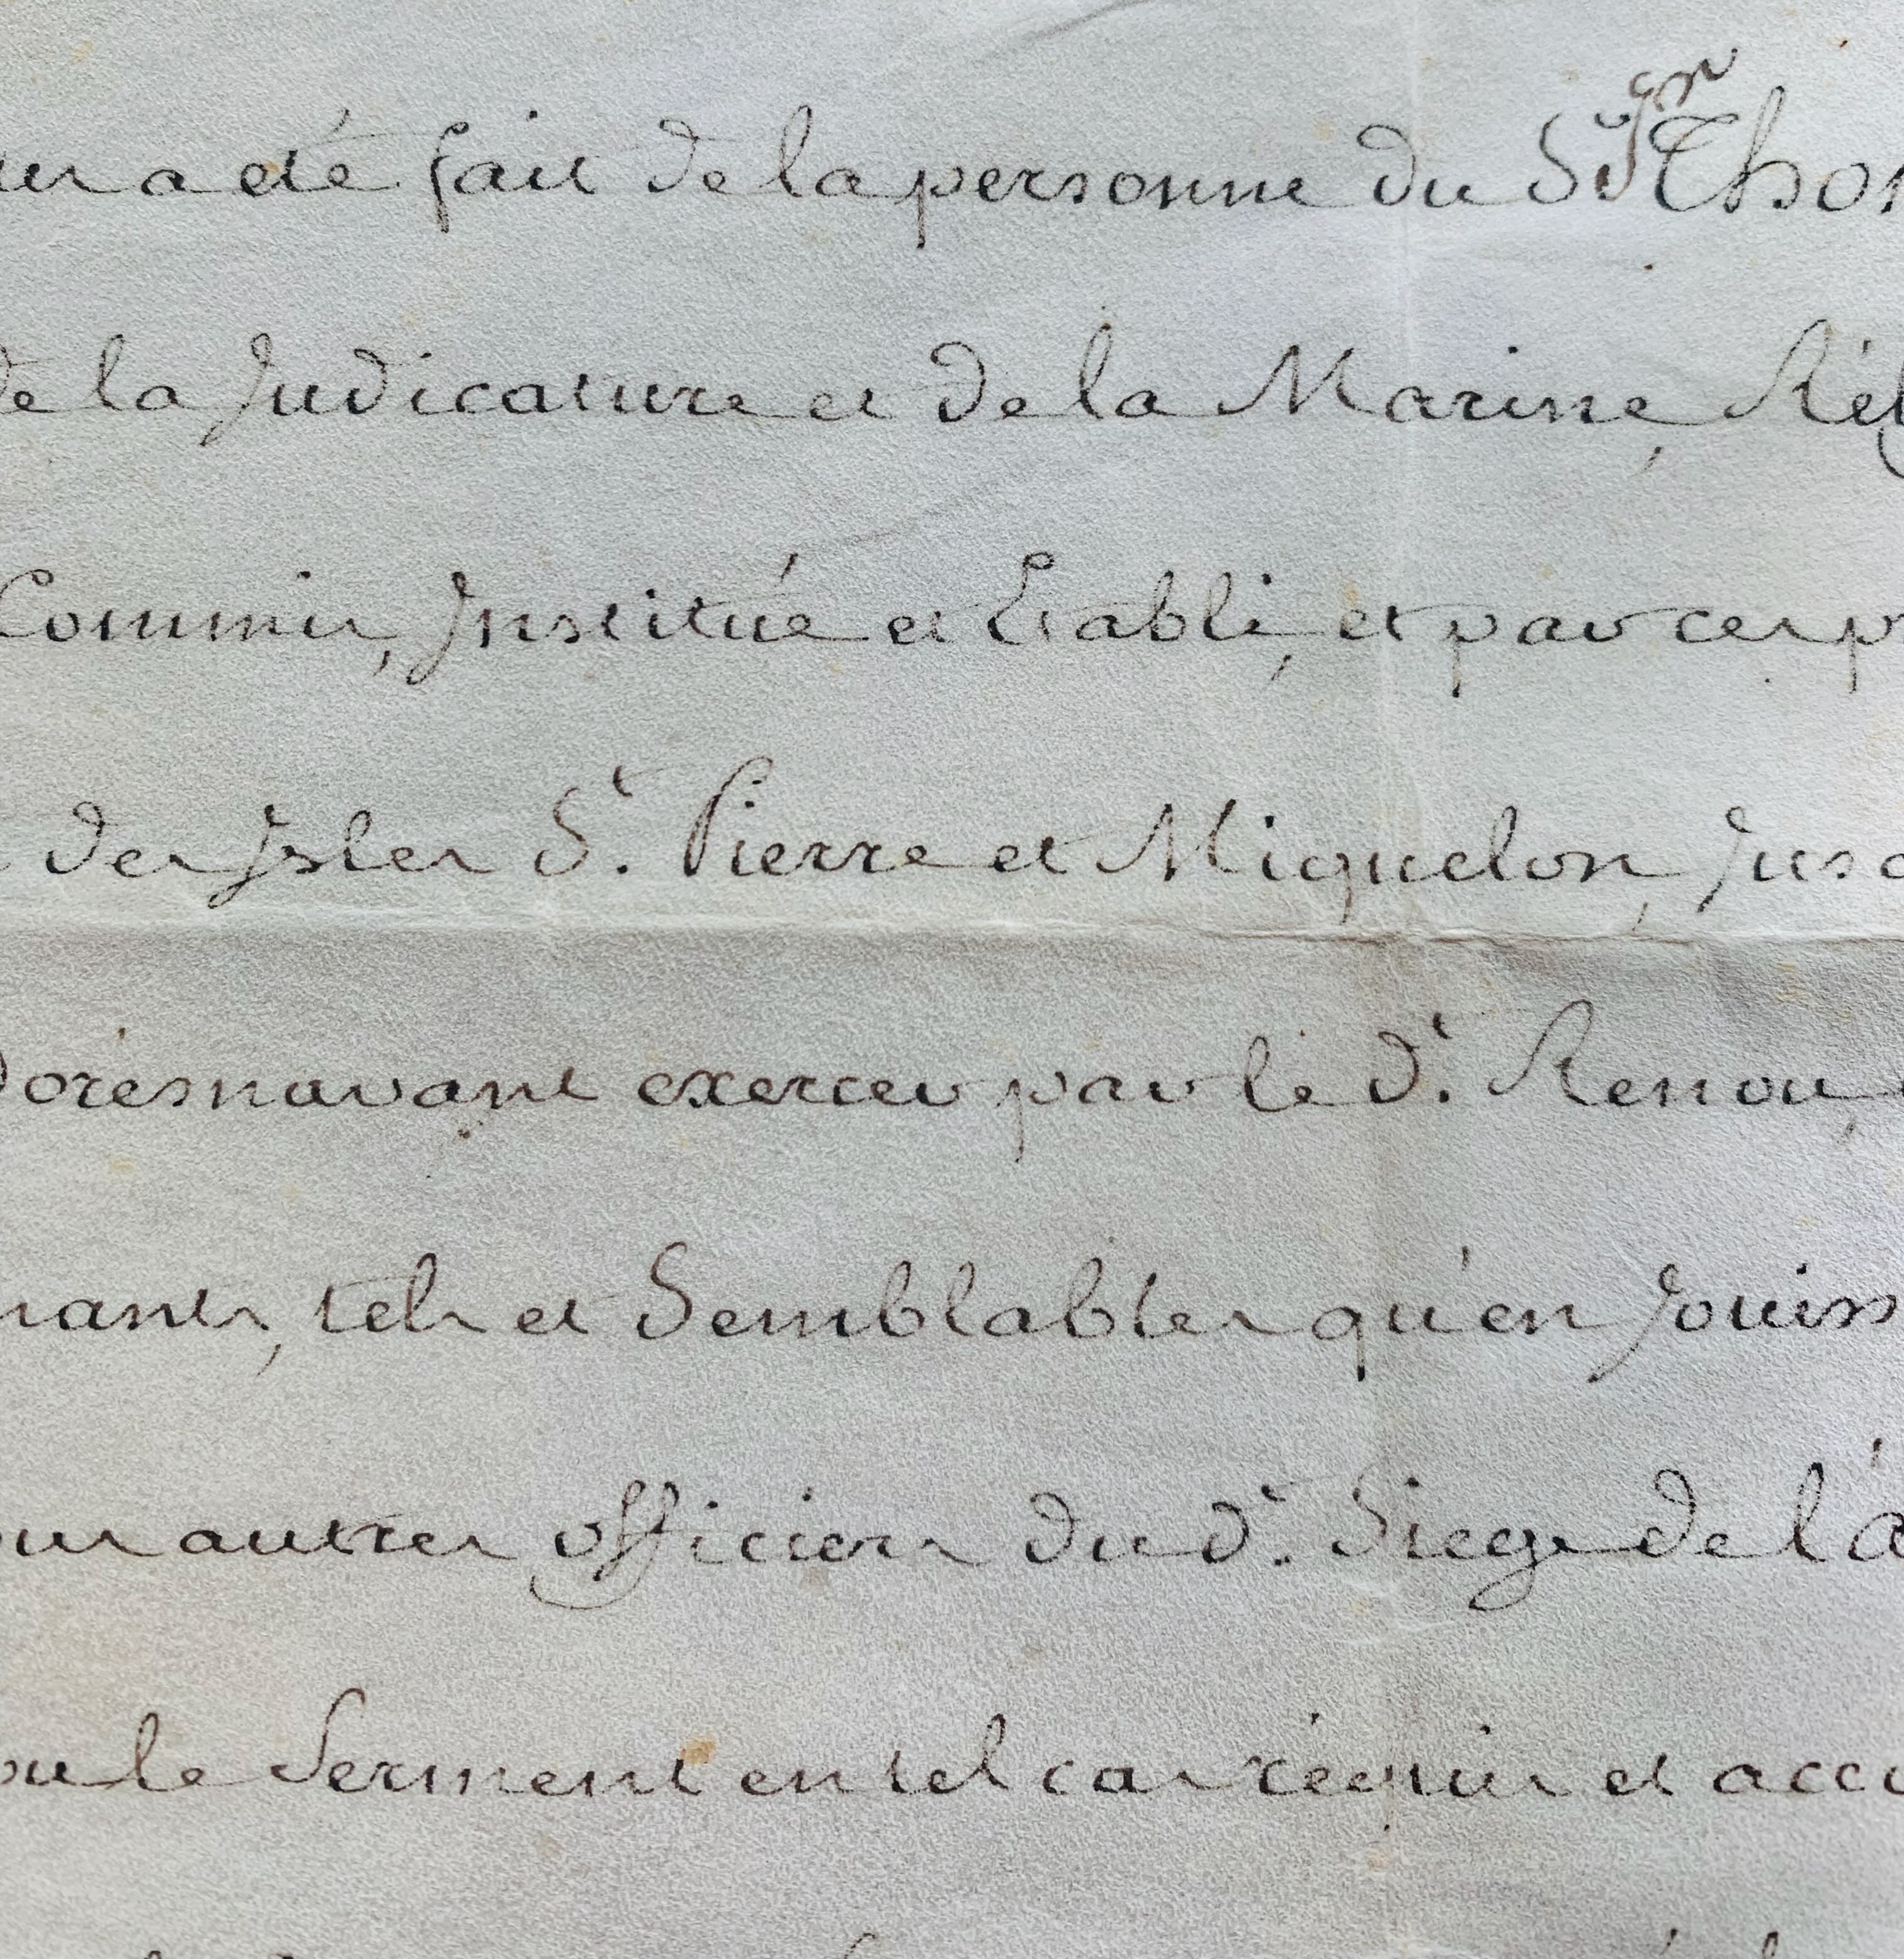 a été fait de la personne du S. Thom
de la Judicature et de la Marine, Rég
Commis, Institué et Etabli, et par ces p
des Isles S.t Pierre et Miquelon, Jusq
Dorésnavant exercer par le d.t Renou,
nants, tels et Semblables qu'en Jouiss
autres officiers du d.t Siege de l'a
le Serment en tel cas réquis et accu